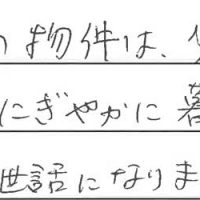 の物件は、
にぎやかに暮
世話になりま